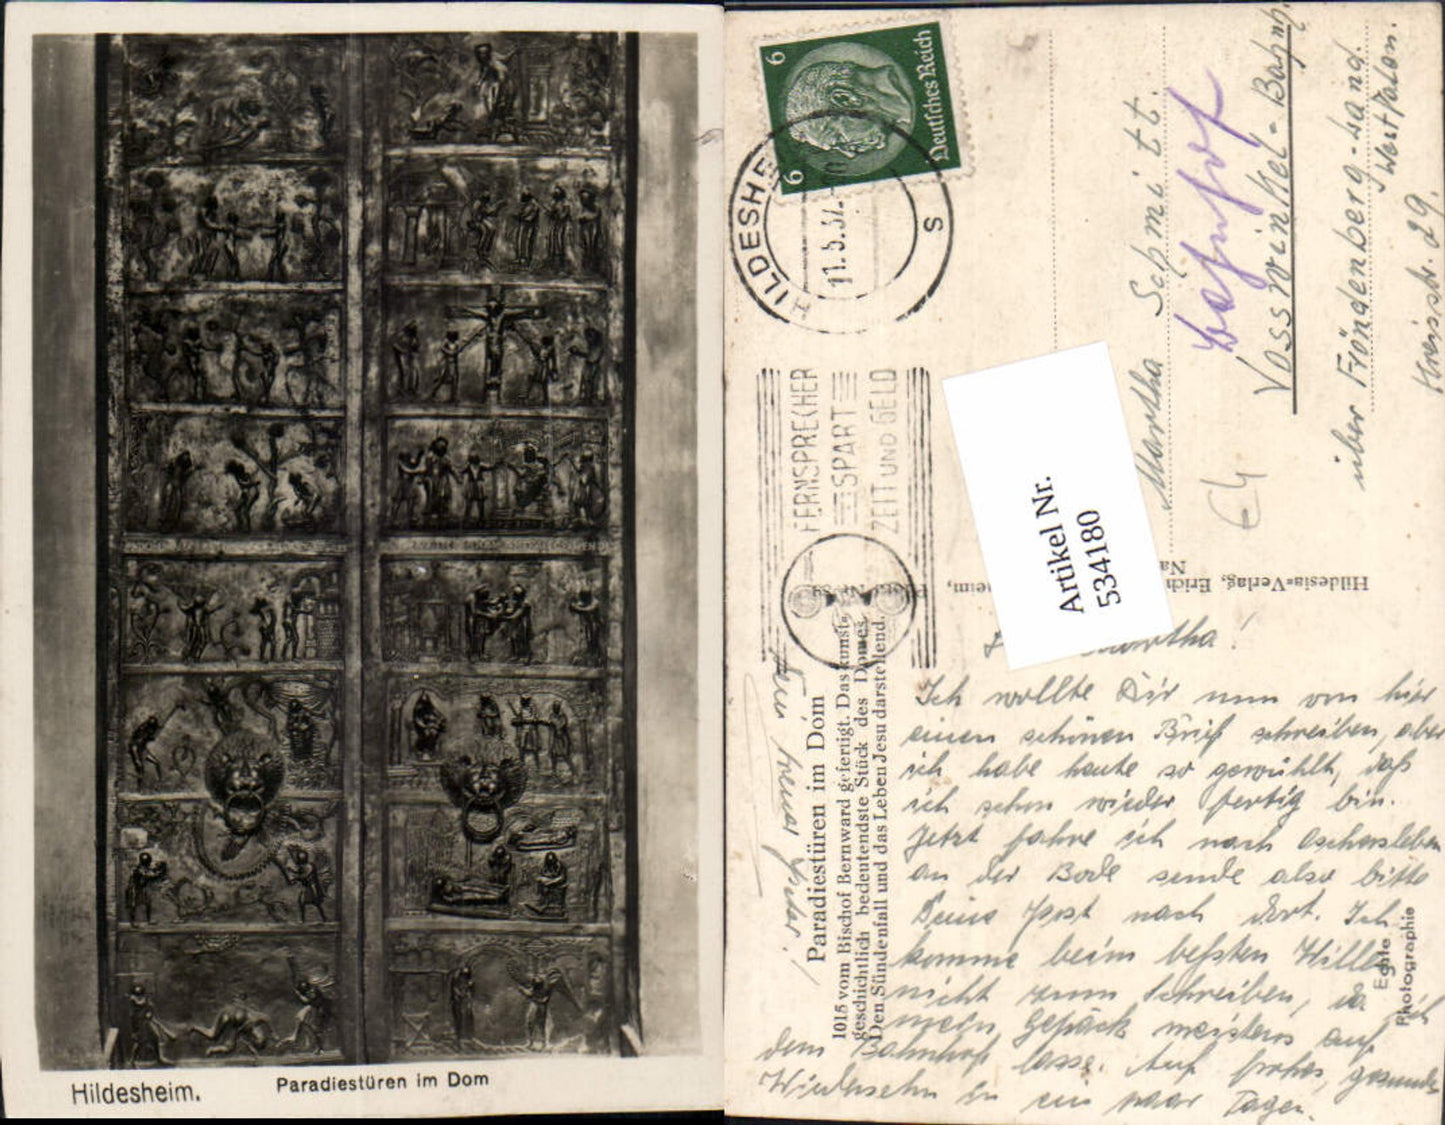 Hildesheim.
Paradiestüren im Dom
6
6
Deutsches Reich
HILDESHEIM
11.5.37
S
FERNSPRECHER
SPART
ZEIT UND GELD
Artikel Nr.
534180
Martha Schmitt.
Bahnhof
Vosswinkel-Bahnh.
über Fröndenberg-Land.
Westfalen.
Kreisstr. 29.
Hildesia-Verlag, Erich
Paradiestüren im Dom
1015 vom Bischof Bernward gefertigt. Das kunst-
geschichtlich bedeutendste Stück des Domes.
Den Sündenfall und das Leben Jesu darstellend.
Echte
Photographie
Martha!
Ich wollte Dir nun von hier
einen schönen Brief schreiben, aber
ich habe heute so gewühlt, daß
ich schon wieder fertig bin.
Jetzt fahre ich nach Oschersleben
an der Bode sende also bitte
Deine Post nach dort. Ich
komme beim besten Willen
nicht zum Schreiben, da ich
mein Gepäck meistens auf
dem Bahnhof lasse. Auf frohes, gesundes
Wiedersehn in ein paar Tagen.
Dein treuer